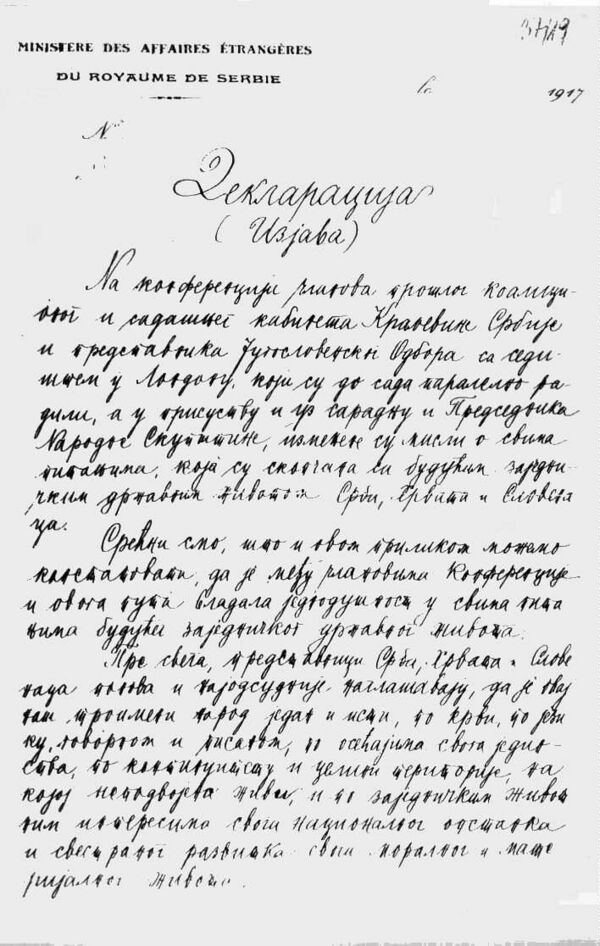 MINISTERE DES AFFAIRES ÉTRANGÈRES
DU ROYAUME DE SERBIE
1917
№
Декларација
(Изјава)
На конференцији чланова прошлог коалици-
оног и садашњег кабинета Краљевине Србије
и представника Југословенског Одбора са седи-
штем у Лондону, који су до сада паралелно ра-
дили, а у присуству и уз сарадњу и Председника
Народне Скупштине, измењене су мисли о свима
питањима, која су скопчана са будућим заједни-
чким државним животом Срба, Хрвата и Словена
ца.
Срећни смо, што и овом приликом можемо
констатовати, да је међу члановима Конференције
и овога пута владала једнодушност у свима пита
њима будућег заједничког државног живота.
Пре свега, представници Срба, Хрвата и Слове
наца поново и најодсудније наглашавају, да је овај
наш троимени народ један и исти, по крви, по јези
ку, говорном и писаном, по осећајима свога једин-
ства, по континуитету и целини територије, на
којој неподвојено живи, и по заједничким живот
ним интересима свога националног опстанка
и свестраног развитка свога моралног и мате
ријалног живота.